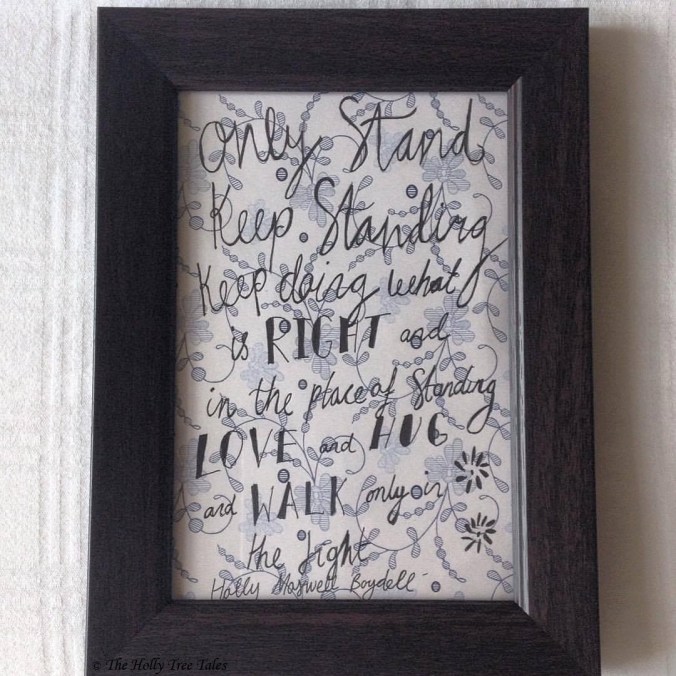 Only Stand
Keep Standing
Keep doing what
is RIGHT and
in the place of Standing
LOVE and HUG
and WALK only in
the Light
Holly Maxwell Boydell
© The Holly Tree Tales